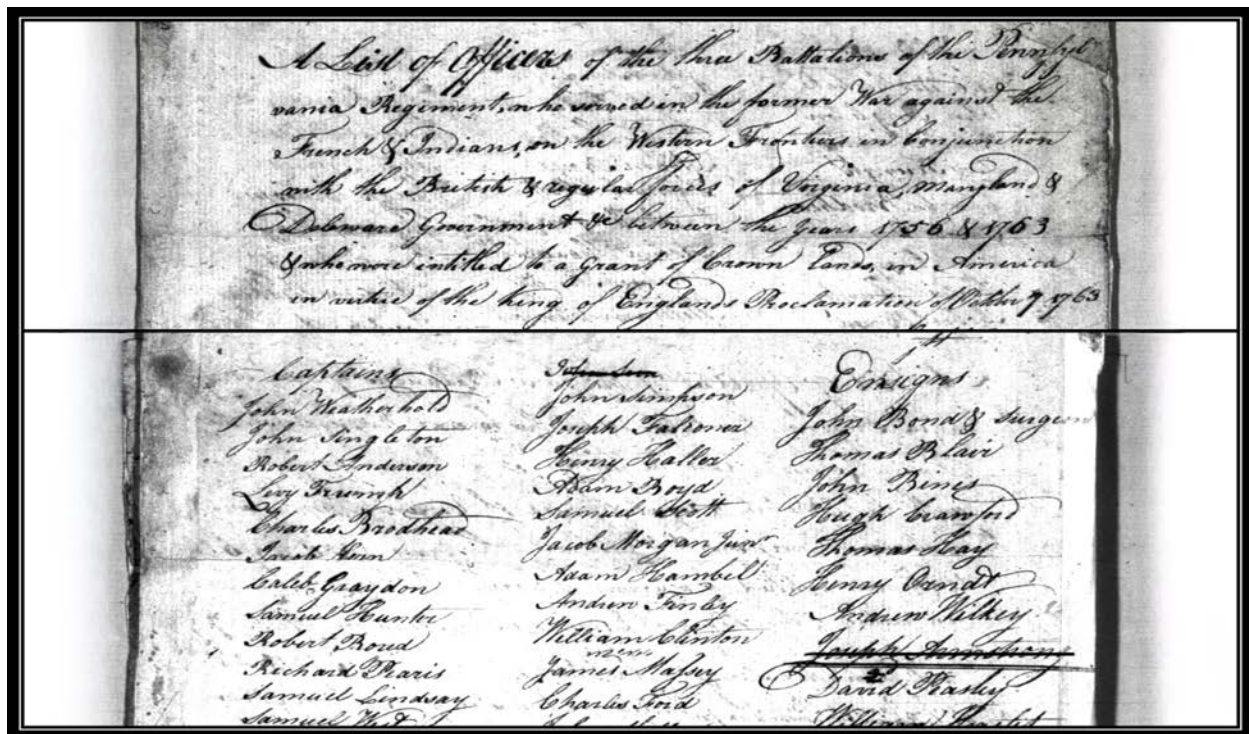 A List of Officers of the three Battalions of the Pennsyl
vania Regiment, who served in the former War against the
French & Indians, on the Western Frontiers in Conjunction
with the British & regular forces of Virginia, Maryland &
Deleware Government &c between the Years 1756 & 1763
& who were intitled to a Grant of Crown Lands, in America
in virtue of the King of Englands Proclamation of October 7, 1763
Captains
John Weatherhold
John Singleton
Robert Anderson
Levy Trumph
Charles Brodhead
Jacob Horn
Caleb Graydon
Samuel Hunter
Robert Boyd
Richard Pearis
Samuel Lindsay
Samuel West
John Simpson
Joseph Falconer
Henry Haller
Adam Boyd
Samuel Scott
Jacob Morgan Junr
Adam Hambel
Andrew Finley
William Clinton
James Massey
Charles Ford
Ensigns
John Bond & Surgeon
Thomas Blair
John Bines
Hugh Crawford
Thomas Hay
Henry Orndt
Andrew Wilkey
Joseph Armstrong
David Peasley
William